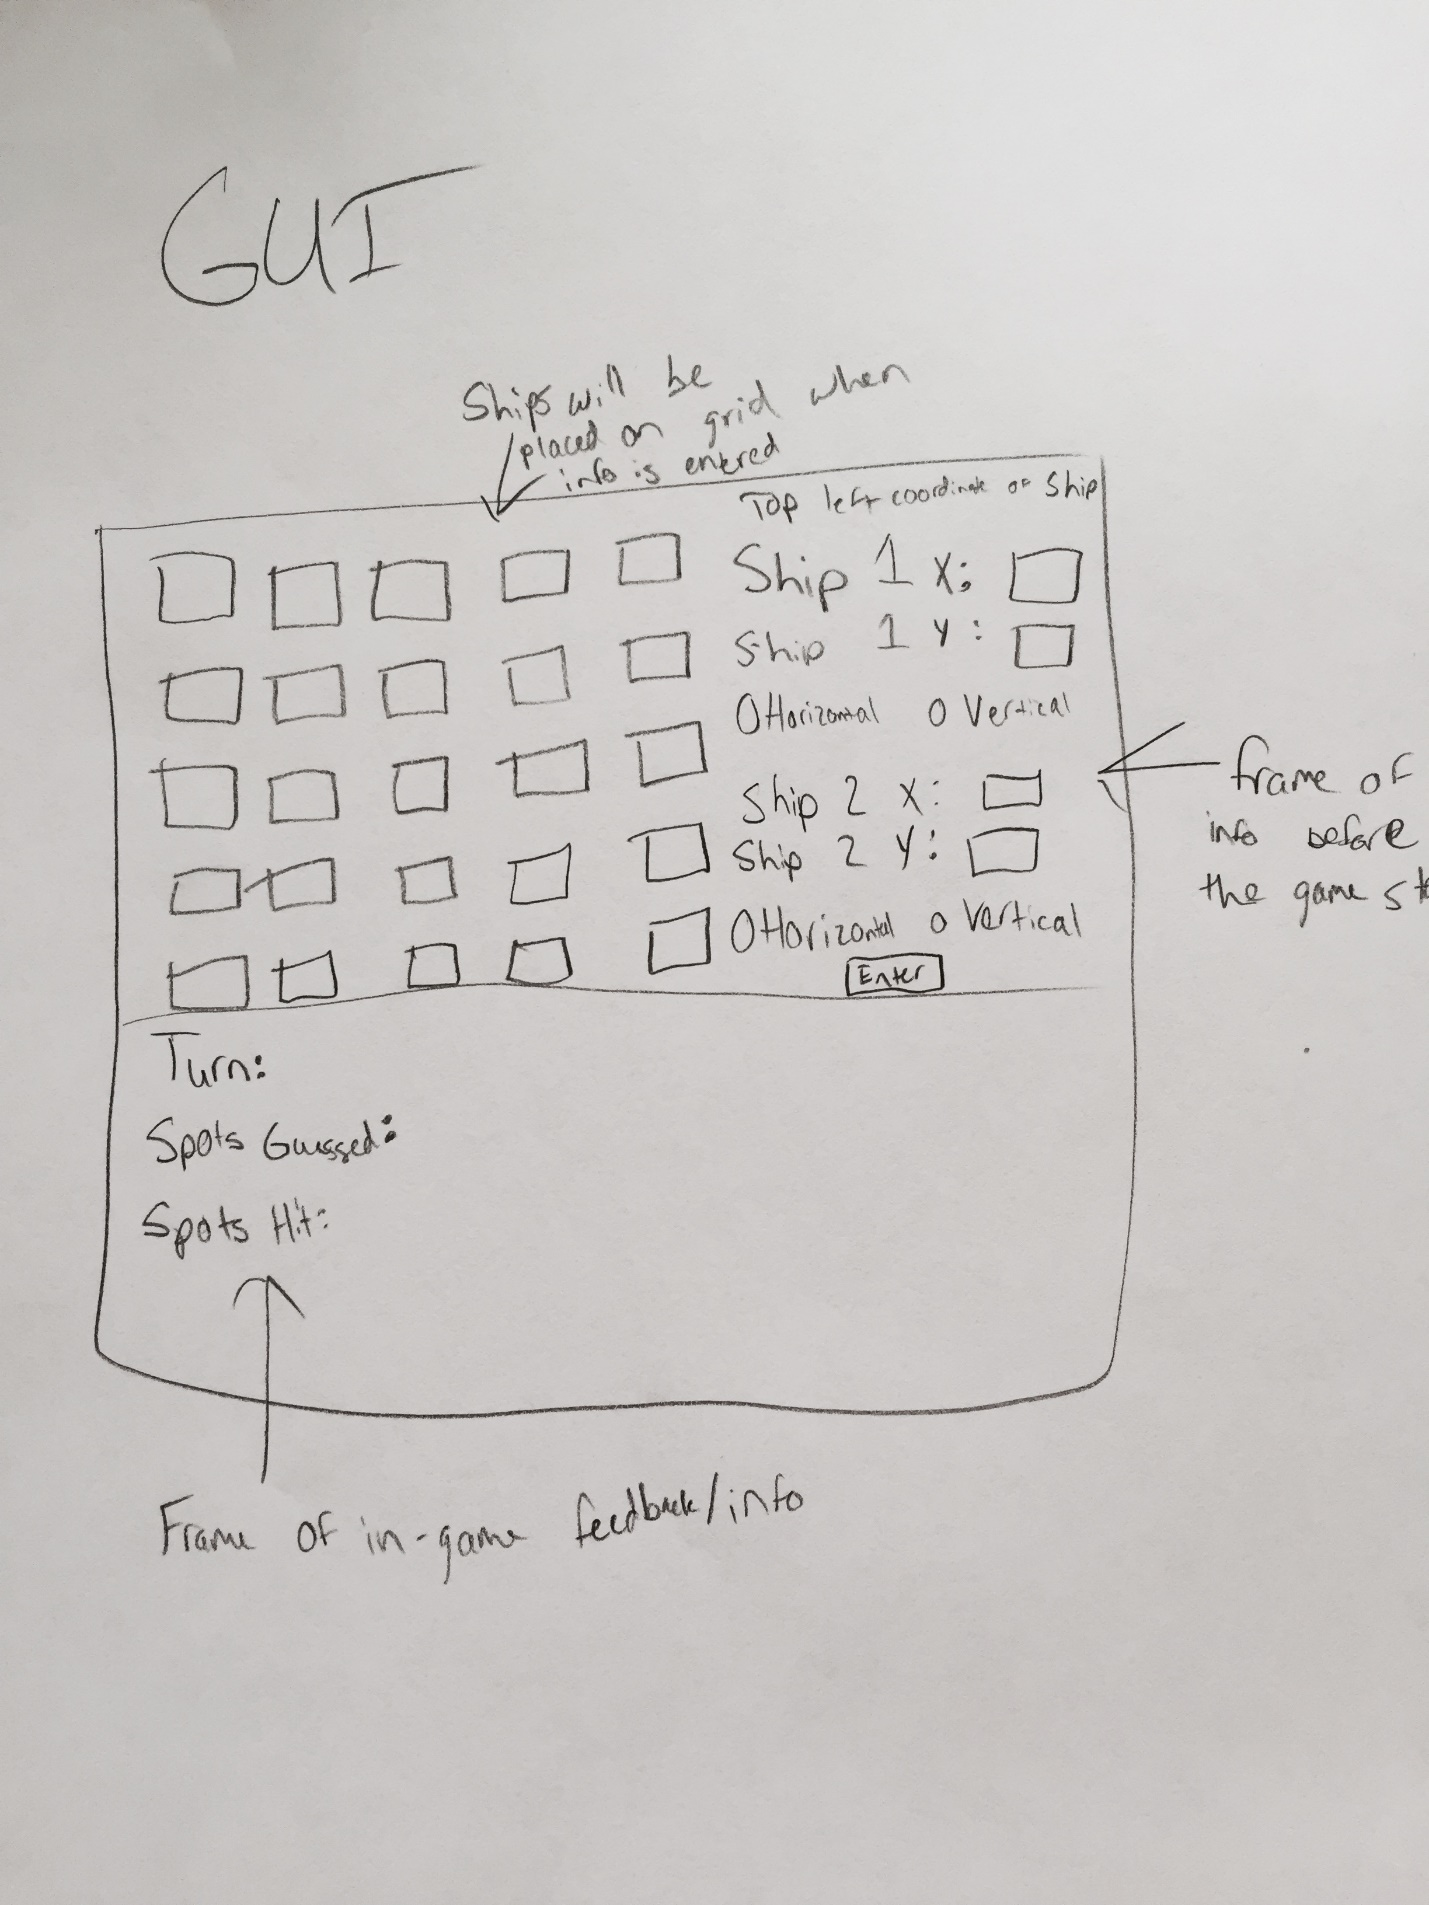 GUI
Ships will be
placed on grid when
info is entered
Top left coordinate of Ship
Ship 1 X:
Ship 1 Y:
Horizontal Vertical
Ship 2 X:
Ship 2 Y:
Horizontal Vertical
Enter
frame of
info before
the game st
Turn:
Spots Guessed:
Spots Hit:
Frame of in-game feedback/info